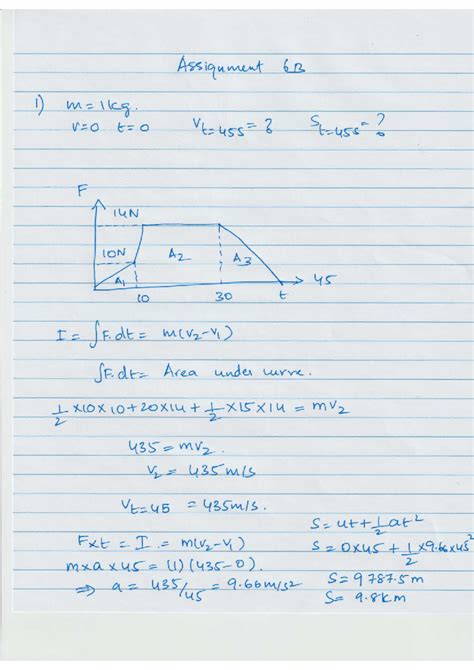 Assignment 6B
1) m=1kg.
v=0 t=0 V t=45s = ? S t=45s = ?
F
14N
10N
A1 A2 A3
10 30 t 45
I = ∫F.dt = m(v2-v1)
∫F.dt = Area under curve.
1/2 ×10×10+20×14+1/2×15×14 = mv2
435 = mv2.
v2 = 435m/s
Vt=45 = 435m/s.
F×t = I = m(v2-v1)
m×a×45 = (1)(435-0).
⇒ a = 435/45 = 9.66m/s2
S= ut+1/2 at2
S= 0×45+1/2×9.66×45 2
S= 9787.5m
S= 9.8km